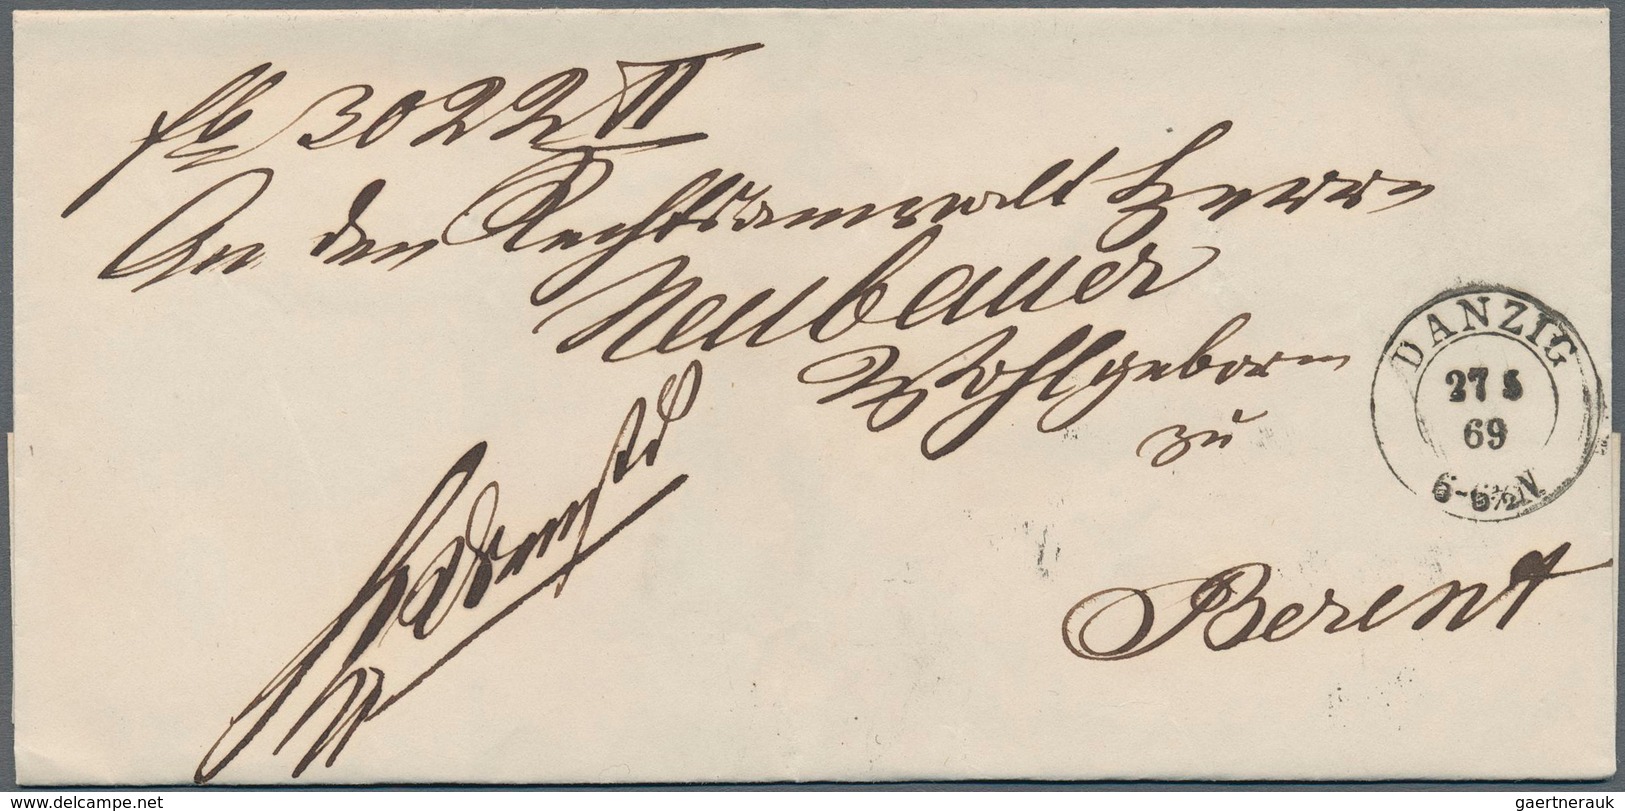 3022 II
An den Rechtsanwalt Herrn
Neubauer
Wohlgeborn
zu
Berent
DANZIG
27 5
69
6-6½N
www.delcampe.net
gaertnerauk